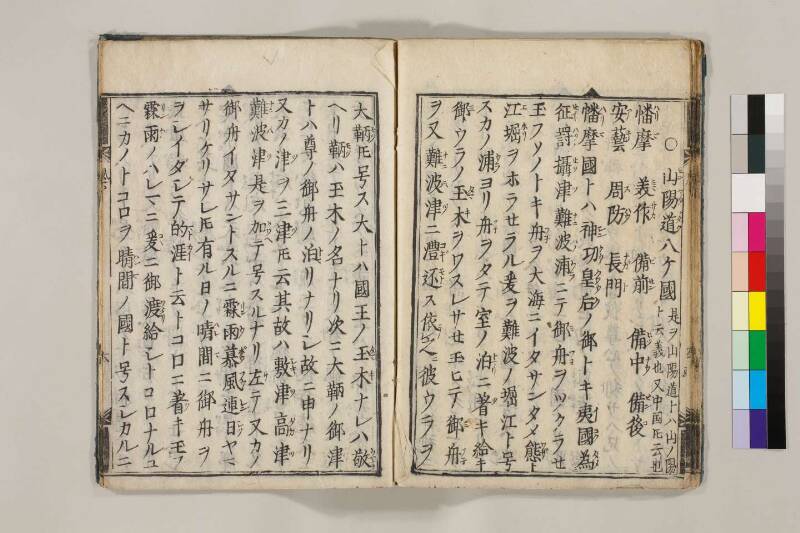 ○山陽道八ケ國 是ヲ山陽道トハ山ノ陽
ト云義也又中国𪜈云也
幡摩 美作 備前 備中 備後
安藝 周防 長門
幡摩國トハ神功皇后ノ御トキ夷國為
征罸攝津難波浦ニテ御舟ヲツクラせ
玉フソノトキ舟ヲ大海ニイタサンタメ態ト
江堀ヲホラサラル爰ヲ難波ノ堀江ト号
スカノ浦ヨリ舟ヲタテ室ノ泊ニ著キ給キ
御ウラノ玉木ヲワスレサせ玉ヒテ御舟
ヲ又難波津ニ漕还ス依之彼ウラヲ
大鞆𪜈号ス大トハ國王ノ玉木ナレハ敬
ヘリ鞆ハ玉木ノ名ナリ次ニ大鞆ノ御津
トハ尊ノ御舟ノ泊リナリシ故ニ申ナリ
又カノ津ヲ三津𪜈云其故ハ敷津高津
難波津是ヲ加テ号スルナリ左テ又カノ
御舟イタサントスルニ霖雨暴風連日ヤマ
サリケリサレ𪜈有ル日ノ晴間ニ御舟ヲ
ヲシイダシテ的涯ト云トコロニ著キ玉フ
霖雨ノハレマニ爰ニ御渡給シトコロナルユ
ヘニカノトコロヲ晴間ノ國ト号スシカルニ